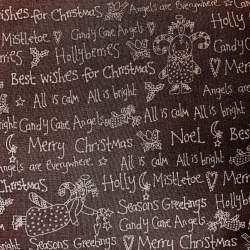 wishes for Christmas Angels are Everywhere.
Merry Christmas Holly
Mistletoe Candy Cane Angels
Hollyberries
Best wishes for Christmas
All is calm All is bright
bright Candy Cane Angels
Merry Christmas Noel
Angels are everywhere. All is calm All is bright
Christmas Holly Mistletoe Merry
Seasons Greetings
Candy Cane Angels
Merry Christmas
Seasons Greetings All is